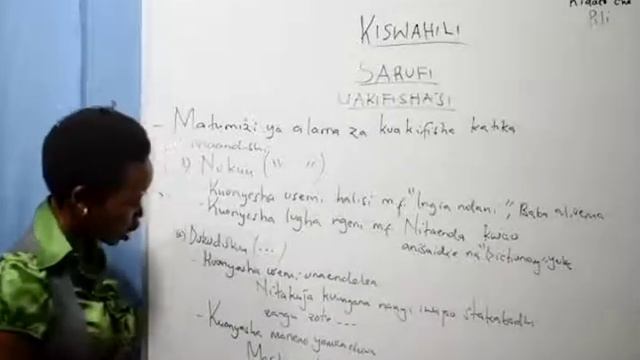 KISWAHILI
SARUFI
UAKIFISHAJI
- Matumizi ya alama za kuakifisha katika
maandishi
i) Nukuu (" ")
- Kuonyesha usemi halisi mf. "Ingia ndani", Baba alisema
- Kuonyesha lugha ngeni mf. Nitaenda kwao
anisaidie na "Dictionary" yake
ii) Dukuduku (...)
- Kuonyesha usemi unaendelea
Nitakuja kuungana nanyi iwapo
zangu zote ...
- Kuonyesha maneno